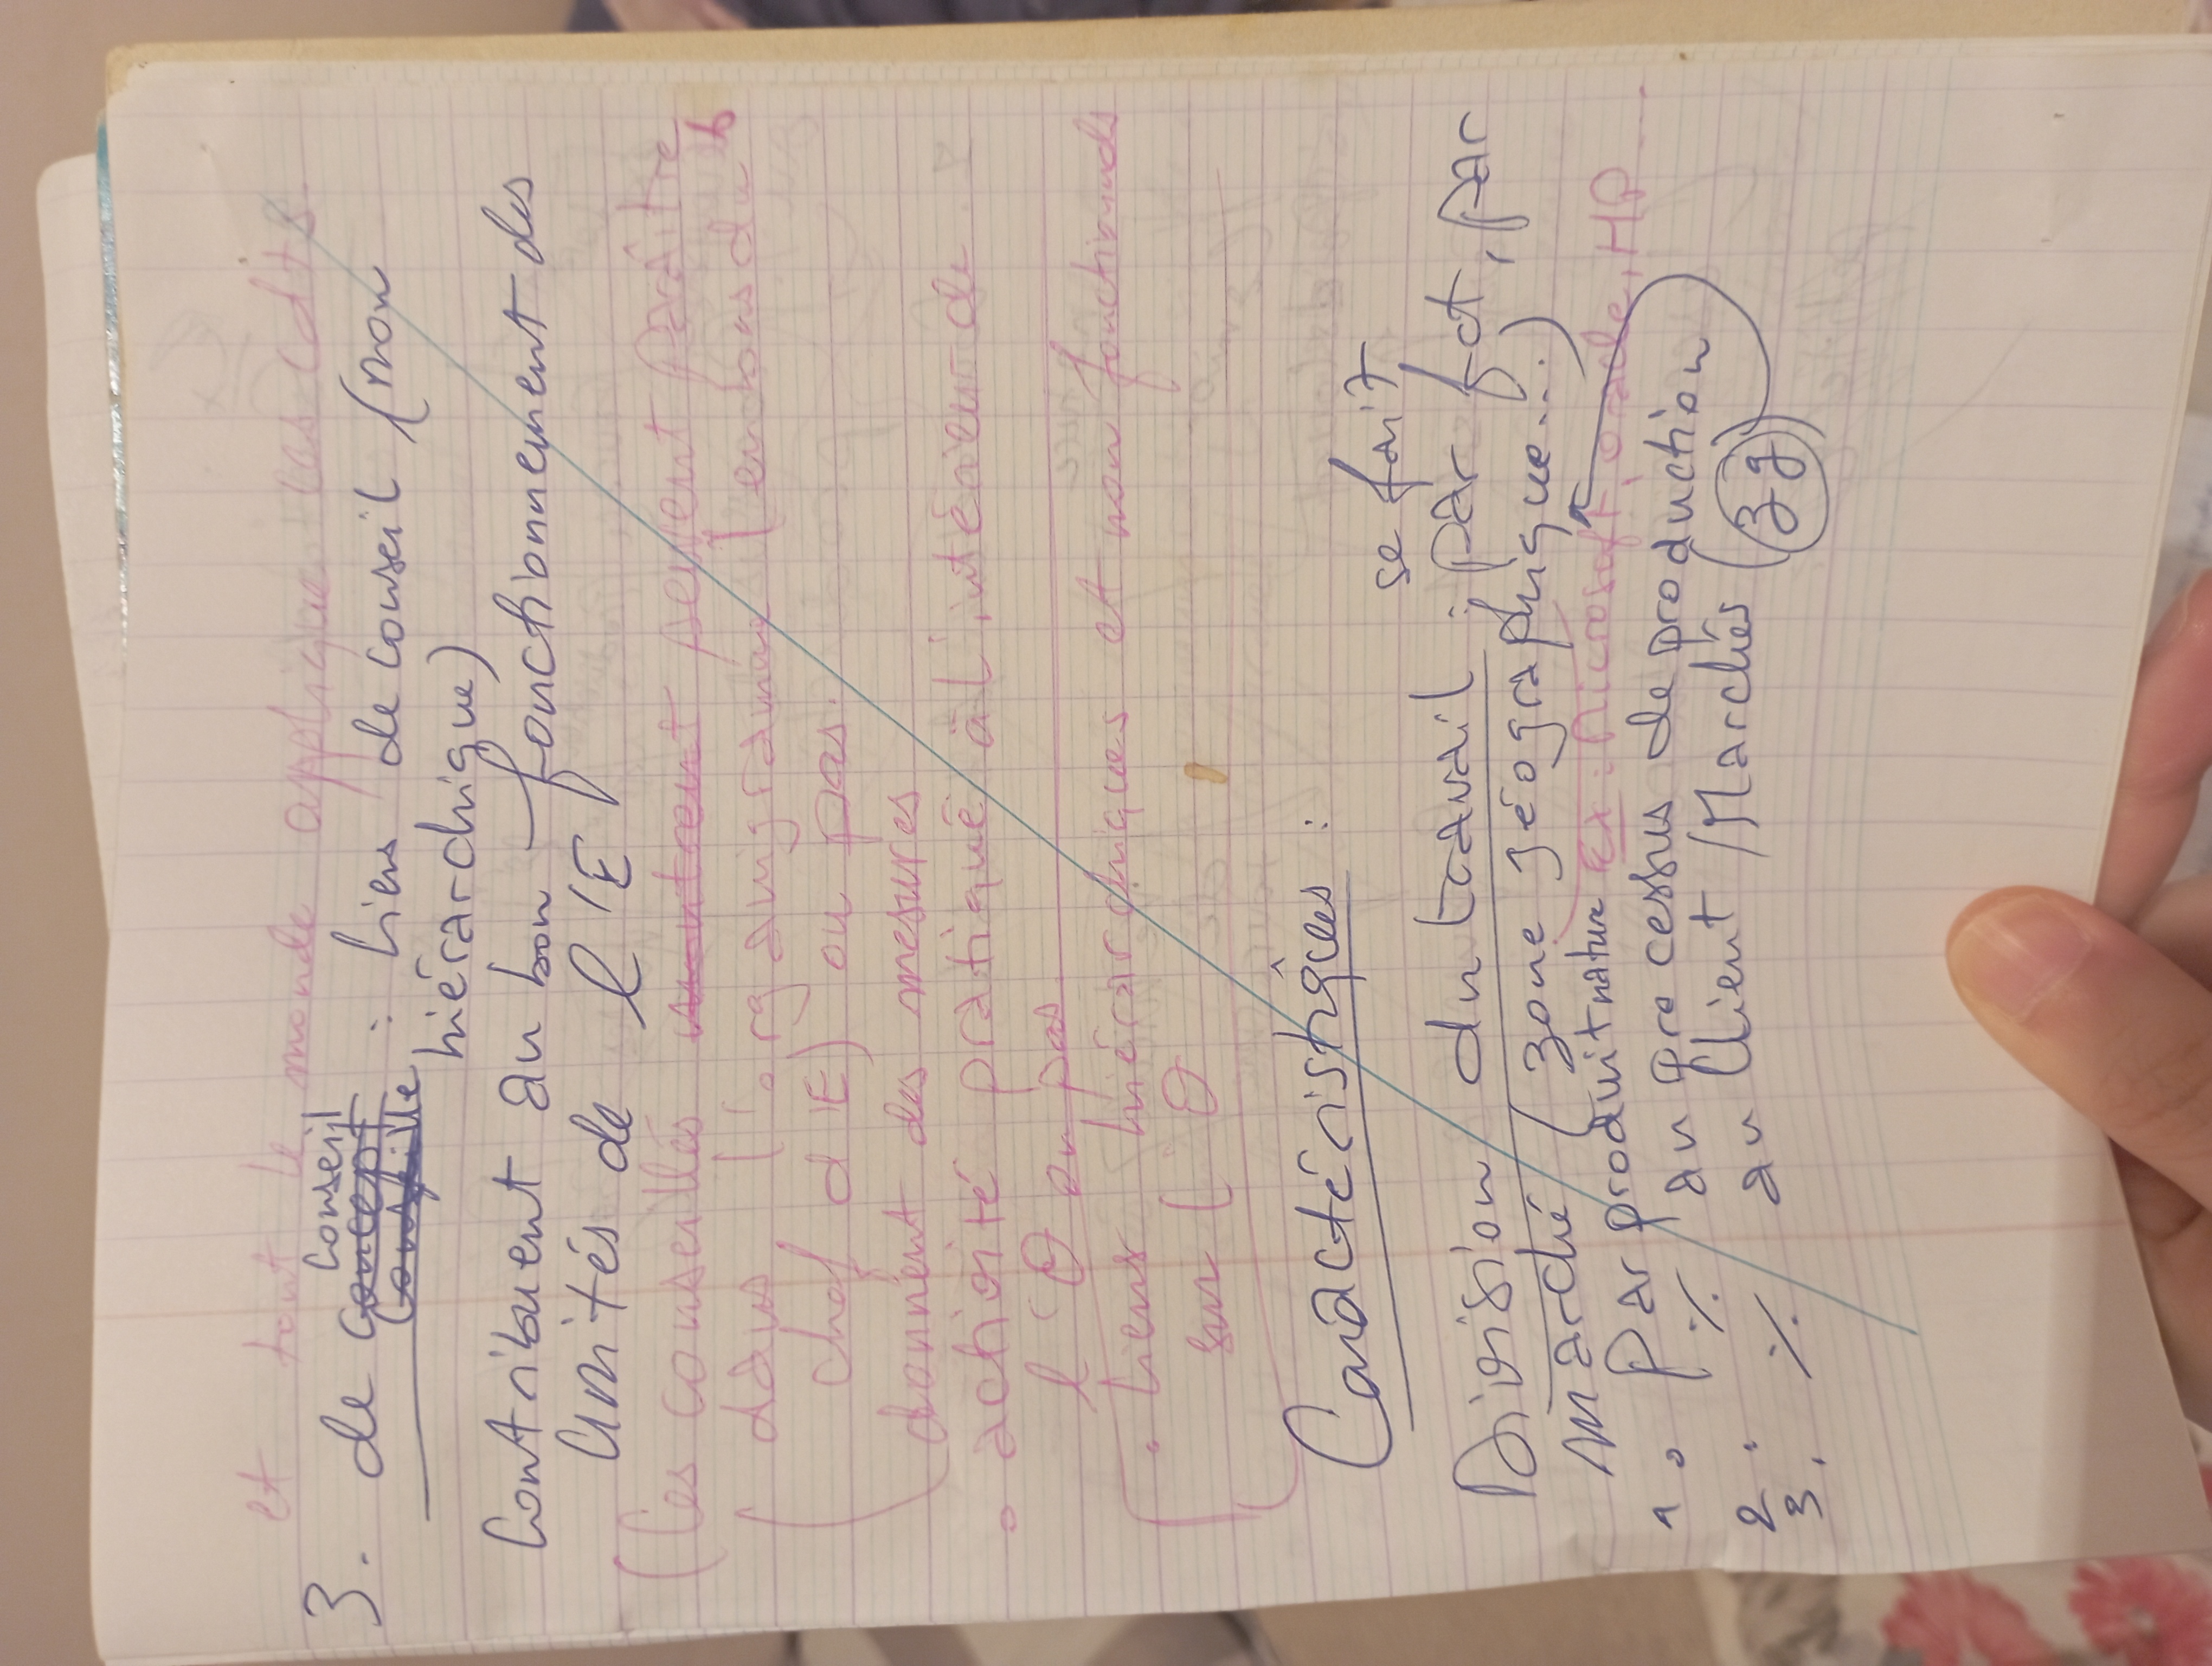 et tout le monde applique ces cdts
Conseil
3. de Concept : liens de conseil (non
Conseille
hiérarchique)
Contribuent au bon fonctionnement des
Unités de l'E
(Ces conseillés montrent peuvent paraître
dans l'organigramme (en bas du
chef d'E) ou pas.
donnent des mesures
• activité pratiqué à l'intérieur de
l'O ou pas
• liens hiérarchiques et non fonctionnels
sur l'O
Caractéristiques :
se fait
Division du travail : par fct, par
marché (zone géographique...)
1. Par produit nature Ex : Microsoft, oracle, HP...
2. ٪ au processus de production
3. ٪ au Client / Marchés (zg)